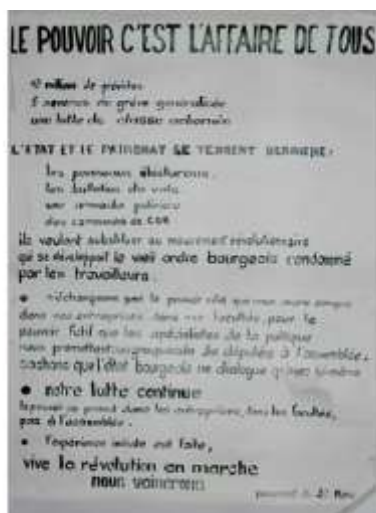 LE POUVOIR C'EST L'AFFAIRE DE TOUS
10 million de grévistes
de grève généralisée
une lutte de classe
L'ETAT ET LE PATRONAT SE TERRENT DERRIERE:
les panneaux électoraux
les bulletins de vote
une armada
des
ils veulent substituer au mouvement révolutionnaire
qui se développe le vieil ordre bourgeois condamné
par les travailleurs.
• n'échangeons pas le pouvoir réel que nous avons conquis
dans nos entreprises dans nos facultés, pour le
pouvoir fictif que les spécialistes de la politique
nous promettent de députés à l'assemblée.
sachons que l'état bourgeois ne dialogue qu'avec lui même
• notre lutte continue
le pouvoir se prend dans les entreprises, dans les facultés,
pas à l'assemblée.
• l'expérience est faite,
vive la révolution en marche
nous vaincrons